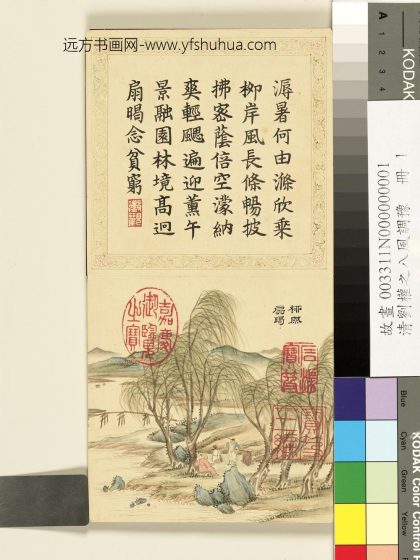 远方书画网-www.yfshuhua.com
溽暑何由滌欣乘
柳岸風長條暢披
拂密蔭倍空濛納
爽輕颸遍迎薰午
景融園林境高迥
扇暍念貧窮
扇暍
嘉慶御覽之寶
石渠寶笈
寶笈三編
故畫 003311N000000001
清劉權之八風調豫 冊 1
A 1 2 3 4
KODAK
Blue
Cyan
Green
Yellow
KODAK Color Control